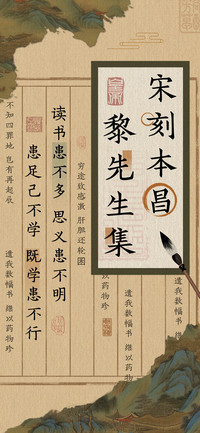 宋刻本昌
黎先生集
遗我数幅书 继以药物珍
遗我数幅书 继以药物珍
穷途致感激 肝胆还轮囷
读书患不多 思义患不明
患足己不学 既学患不行
不知四罪地 岂有再起辰
遗我数幅书 继以药物珍